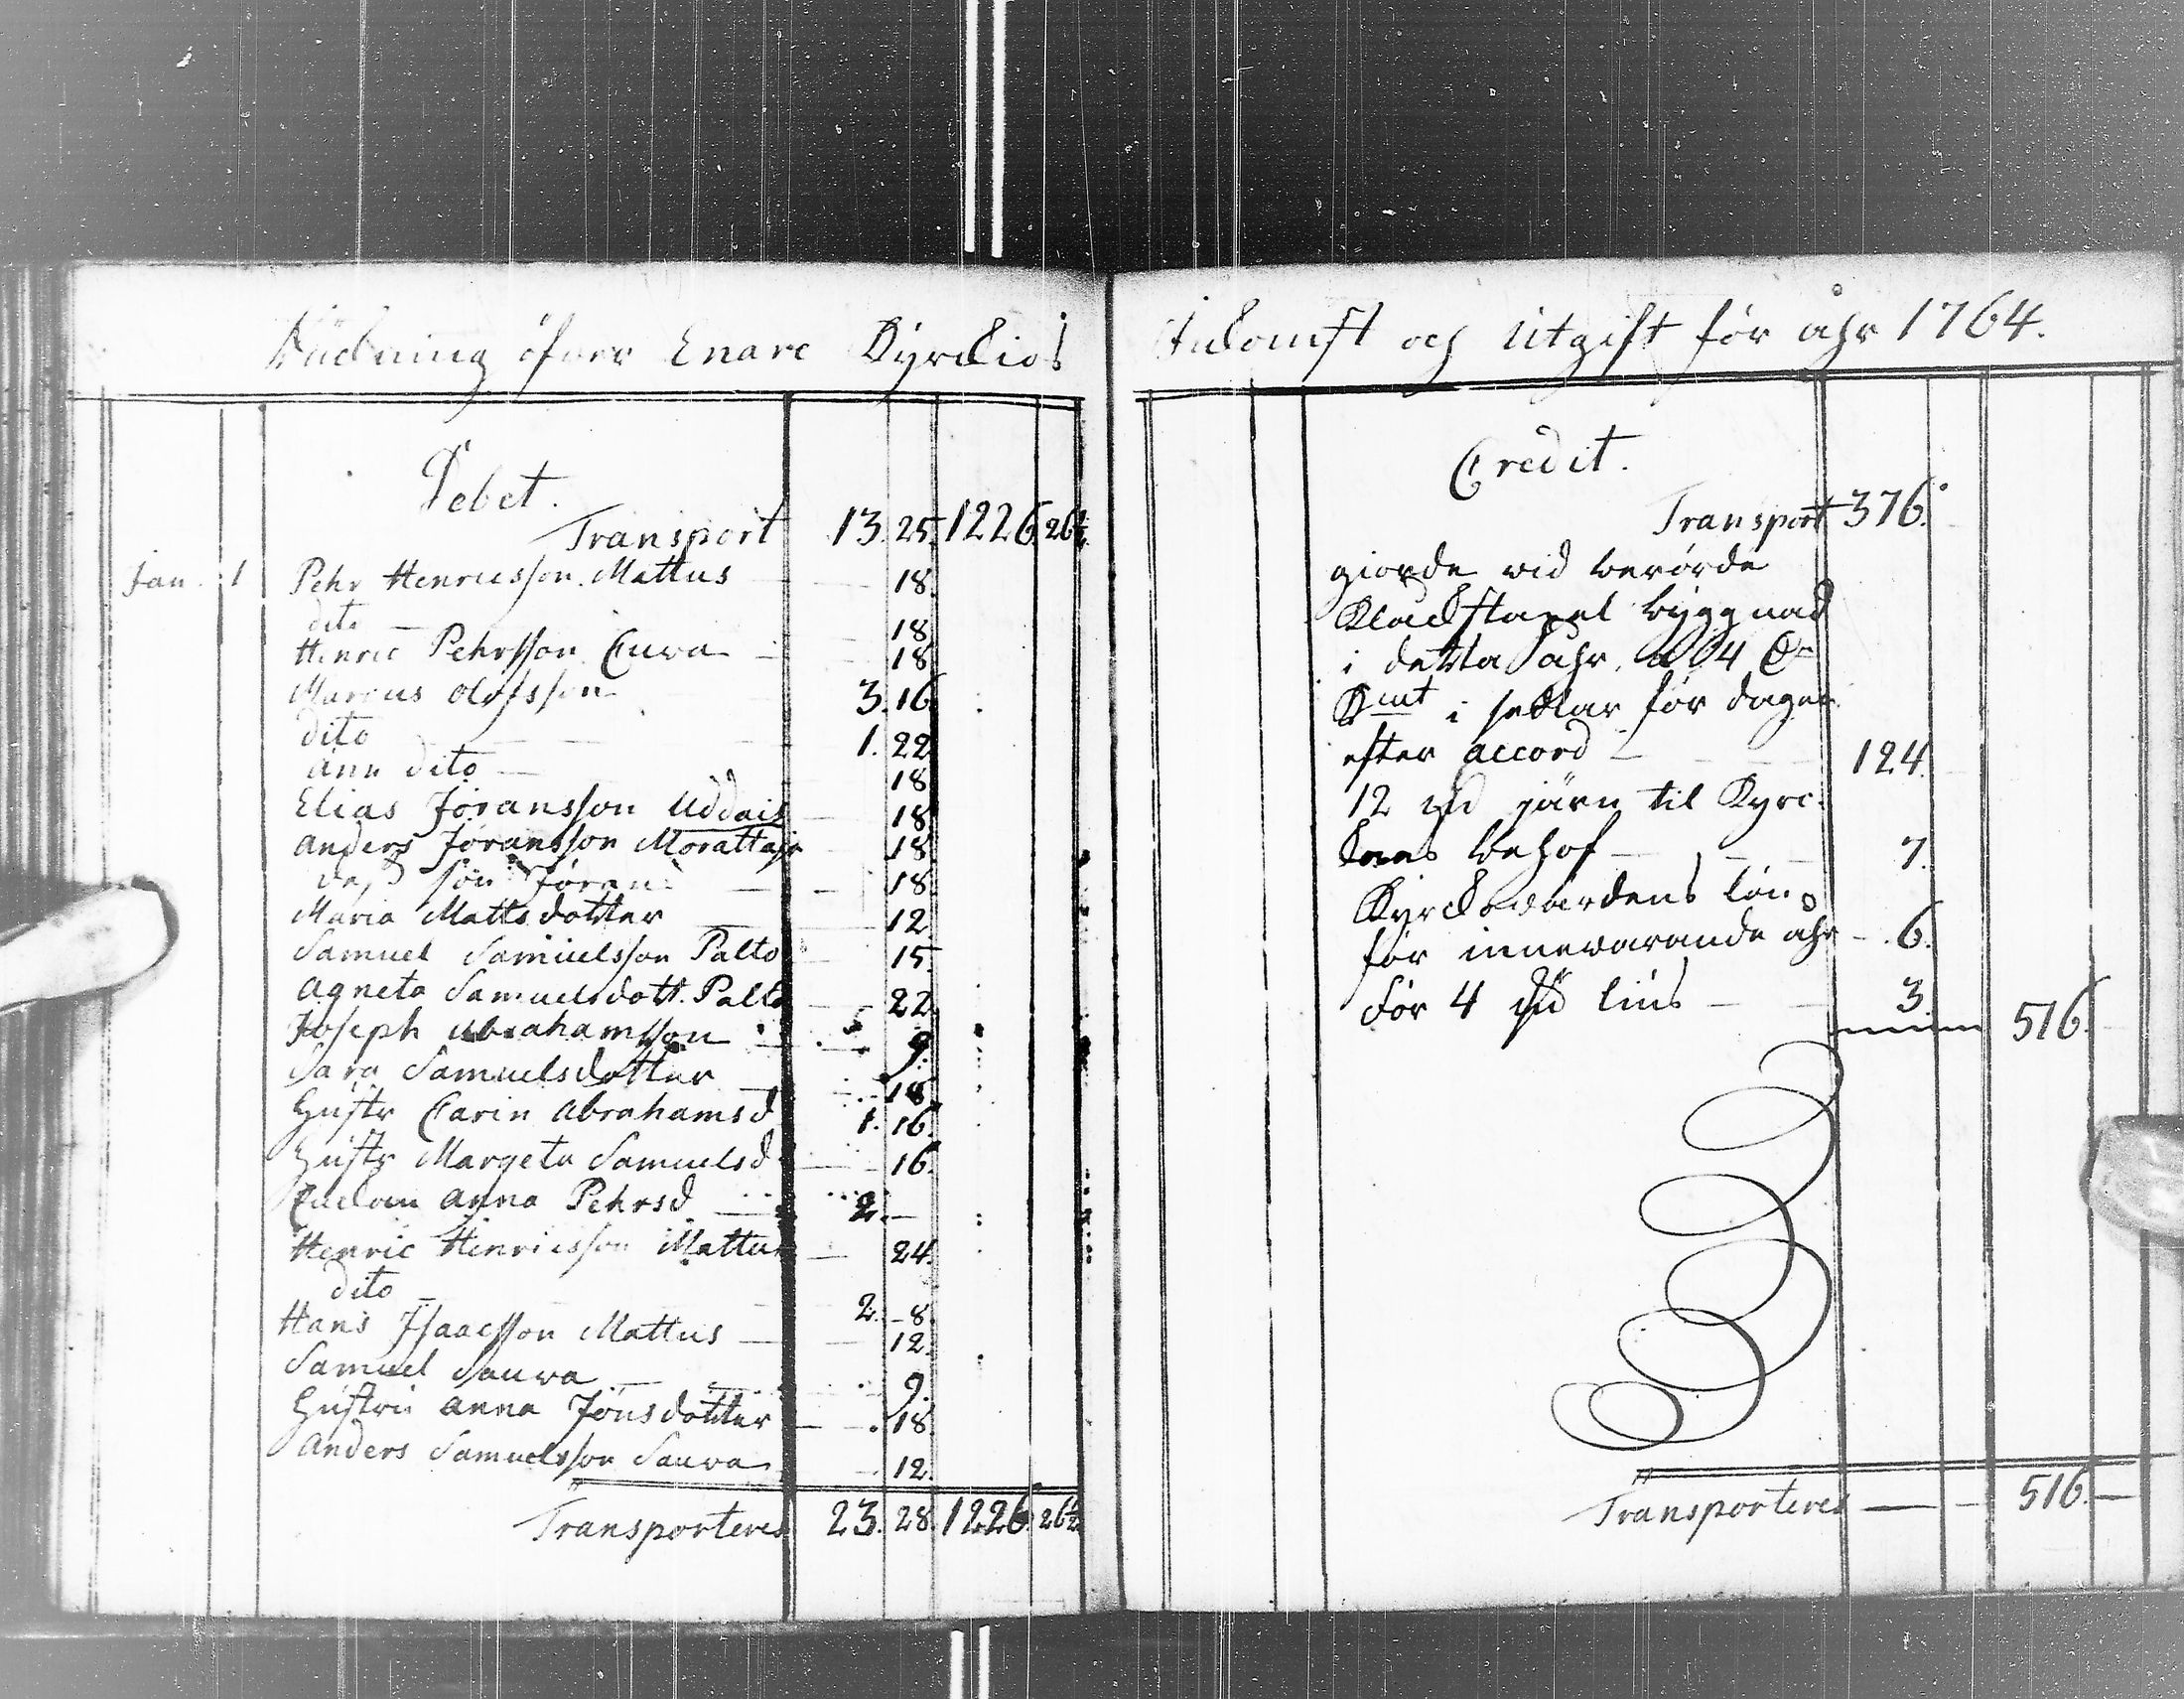 Räckning öfver Enare Kyrckios
Debet.
Transport 13. 25. 1226. 26½
Jan. 1 Pehr Henricsson Mattus 18.
dito 18
Henric Pehrsson Cuwa 18
Marcus Olofsson 3. 16.
dito 1. 22
änn dito 18
Elias Jöransson Uddais 18
Anders Jöransson Morattaja 18.
Dess son Jöran 18.
Maria Mattsdotter 12.
Samuel Samuelsson Palto 15.
Agneta Samuelsdott. Palto 22.
Joseph Abrahamsson 9.
Sara Samuelsdotter 18.
Hustr Carin Abrahamsd 1. 16.
Hustr Margeta Samuelsd 16.
Anna Pehrsd 2. —
Henric Henricsson Mattus 24.
dito 2. 8.
Hans Isaacsson Mattus 12.
Samuel Sauwa 9.
Hustru Anna Jönsdotter 18.
Anders Samuelsson Sauwa 12.
Transporteres 23. 28. 1226. 26½
Inkomst och Utgift för åhr 1764.
Credit.
Transport 376.
giorde wid berörde
Klockstapel byggnad
i detta åhr, a 4 Dr
Kmt i sedlar för dagen
efter accord 124.
12 järn til Kyrc-
kans behof 7.
Kyrckowärdens lön
för innewarande åhr 6.
För 4 lius 3.
516.
Transporteres — 516. —